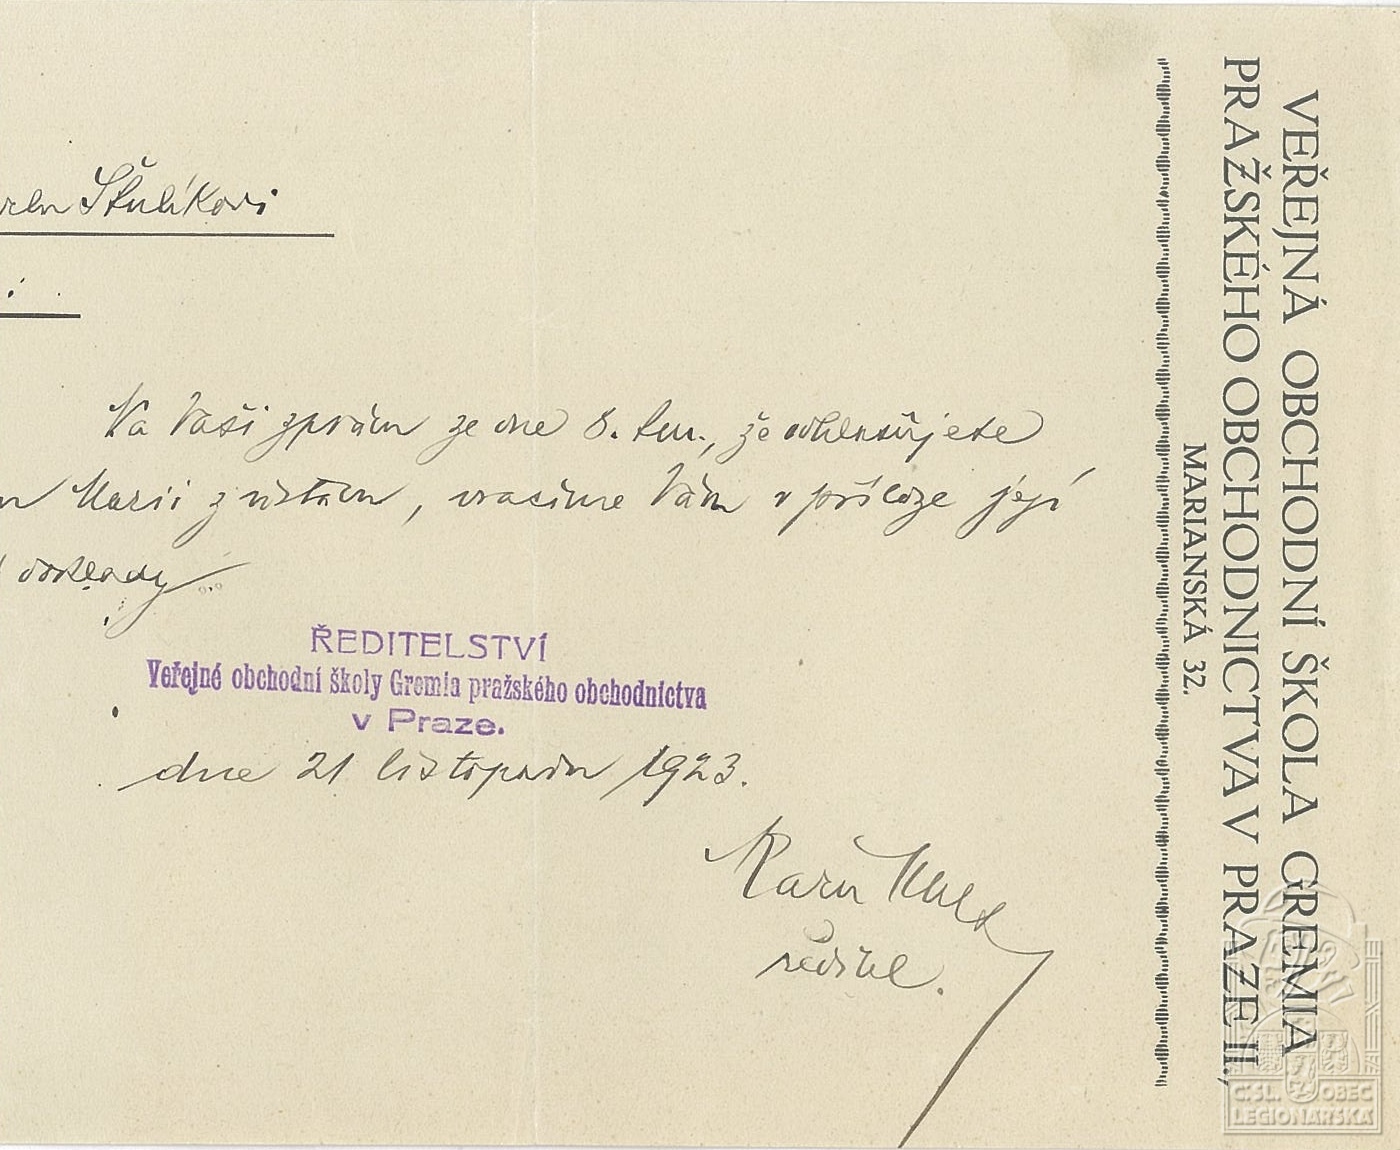 VEŘEJNÁ OBCHODNÍ ŠKOLA GREMIA
PRAŽSKÉHO OBCHODNICTVA V PRAZE II.,
MARIANSKÁ 32.
Štulíkovi
Na Vaši zprávu ze dne 8. t.m., že odhlašujete
Marii z ústavu, vracíme Vám v příloze její
doklady
ŘEDITELSTVÍ
Veřejné obchodní školy Gremia pražského obchodnictva
v Praze.
dne 21 listopadu 1923.
ředitel.
ČSL. OBEC
LEGIONÁŘSKÁ